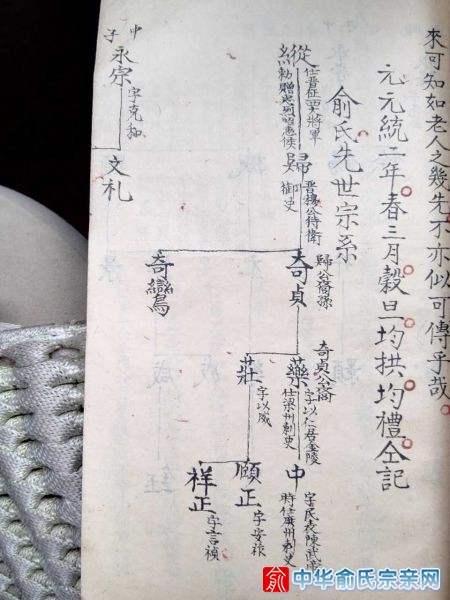 來可知如老人之幾先不亦似可傳乎哉
元元統二年春三月穀旦均拱均禮仝記
俞氏先世宗系
縱
仕晋征西將軍
勅贈忠烈昭惠候
歸
晋揚公待衛
御史
奇貞
歸公裔孫
奇鸞
藥
奇貞公裔
字以仁居金陵
仕梁州刺史
莊
字以威
中
字民表陳武
時任廣州刺史
頤正
字安
祥正
字言禎
中子
永宗
字克和
文礼
俞 中华俞氏宗亲网